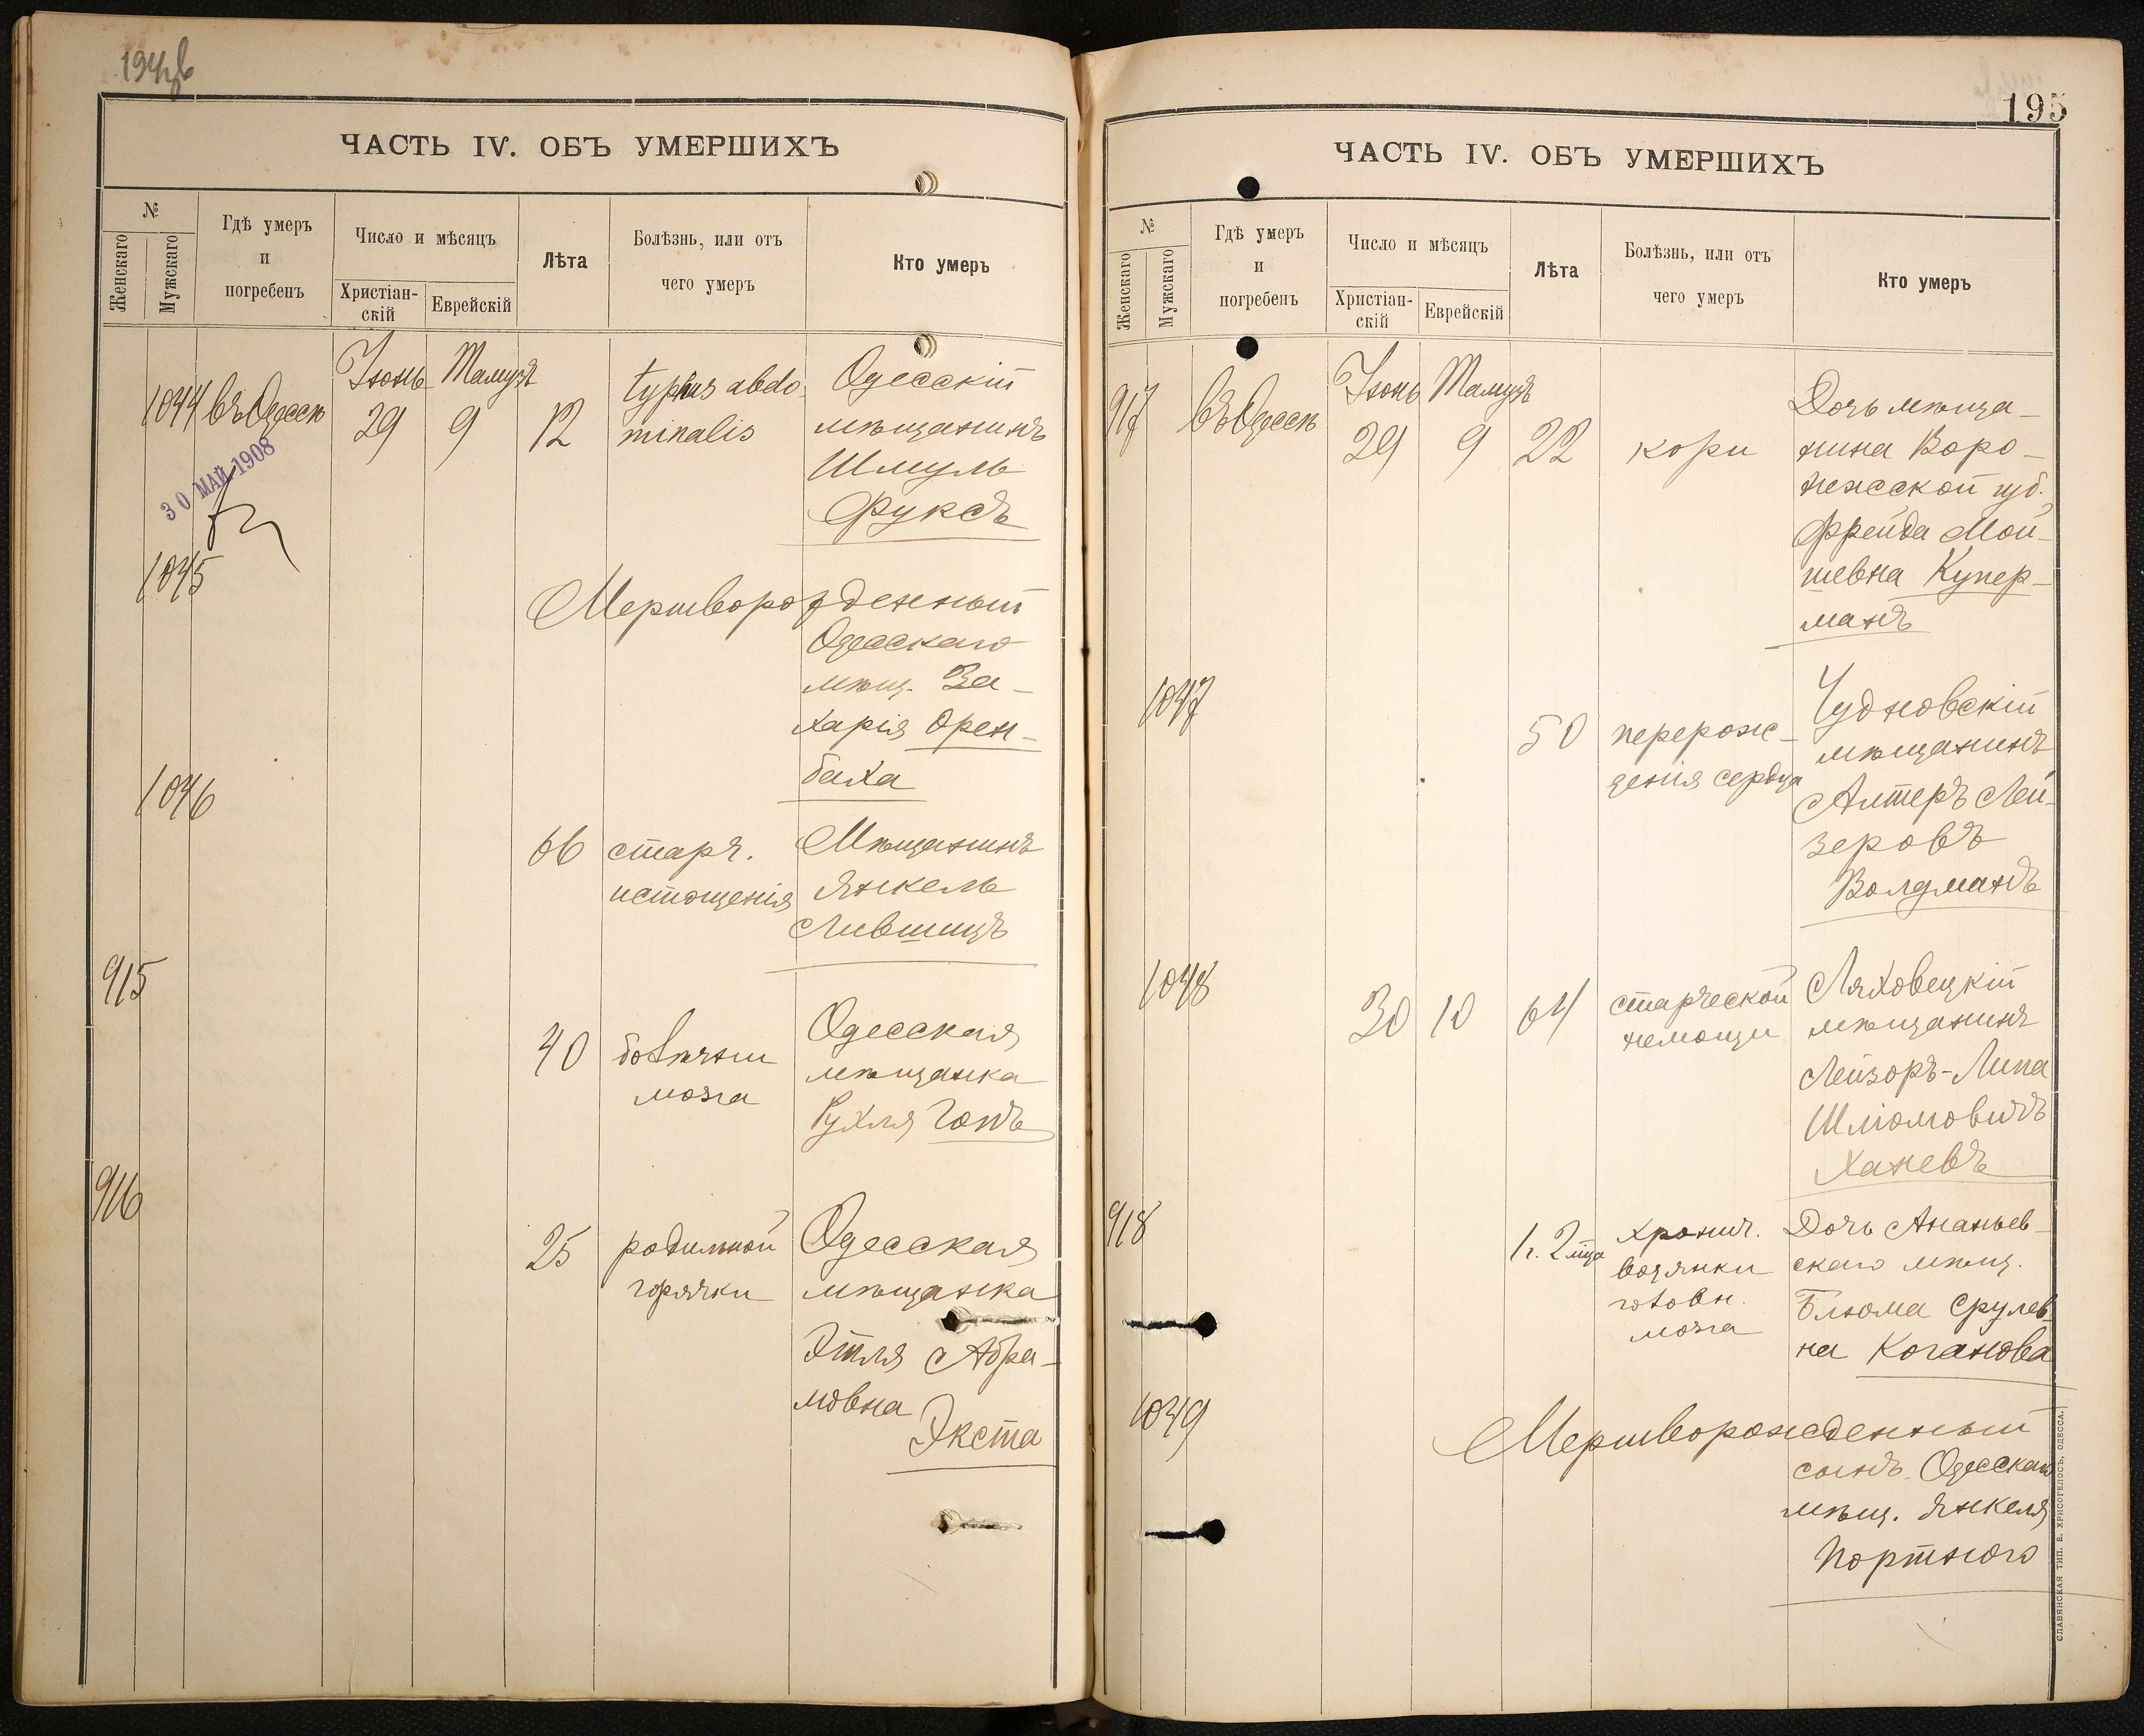 194об
ЧАСТЬ IV. ОБЪ УМЕРШИХЪ
№
Женскаго
Мужскаго
Гдѣ умеръ
и
погребенъ
Число и мѣсяцъ
Христіан-
скій
Еврейскій
Лѣта
Болѣзнь, или отъ
чего умеръ
Кто умеръ
Іюнь Тамузъ
1044 въ Одессѣ 29 9 12 typhus abdo-
minalis
Одесскій
мѣщанинъ
Шмуль
Фуксъ
30 МАЙ 1908
1045
Мертворожденный
Одесскаго
мѣщ. За-
харія Орен-
баха
1046
66 старч.
истощенія
Мѣщанинъ
Янкель
Лившицъ
915
40
мозга
Одесская
мѣщанка
Рухля Гонъ
916
25 родильной
горячки
Одесская
мѣщанка
Этля Абра-
мовна
Экста
195
ЧАСТЬ IV. ОБЪ УМЕРШИХЪ
№
Женскаго
Мужскаго
Гдѣ умеръ
и
погребенъ
Число и мѣсяцъ
Христіан-
скій
Еврейскій
Лѣта
Болѣзнь, или отъ
чего умеръ
Кто умеръ
Іюнь Тамузъ
917 въ Одессѣ 29 9 22 кори
Дочь мѣща-
нина Воро-
нежской губ.
Фрейда Мой-
шевна Купер-
манъ
1047
50 перерож-
денія сердца
Чудновскій
мѣщанинъ
Алтеръ Лей-
зеровъ
Волдманъ
1048
30 10 64 старческой
немощи
Ляховецкій
мѣщанинъ
Лейзоръ-Липа
Шліомовичъ
Ханевъ
918
1 г. 2 мца хронич.
водянки
головн.
мозга
Дочь Ананьев-
скаго мѣщ.
Блюма Срулев-
на Коганова
1049
Мертворожденный
сынъ Одесскаго
мѣщ. Янкеля
Портного
СЛАВЯНСКАЯ ТИП. Е. ХРИСОГЕЛОСЪ, ОДЕССА.